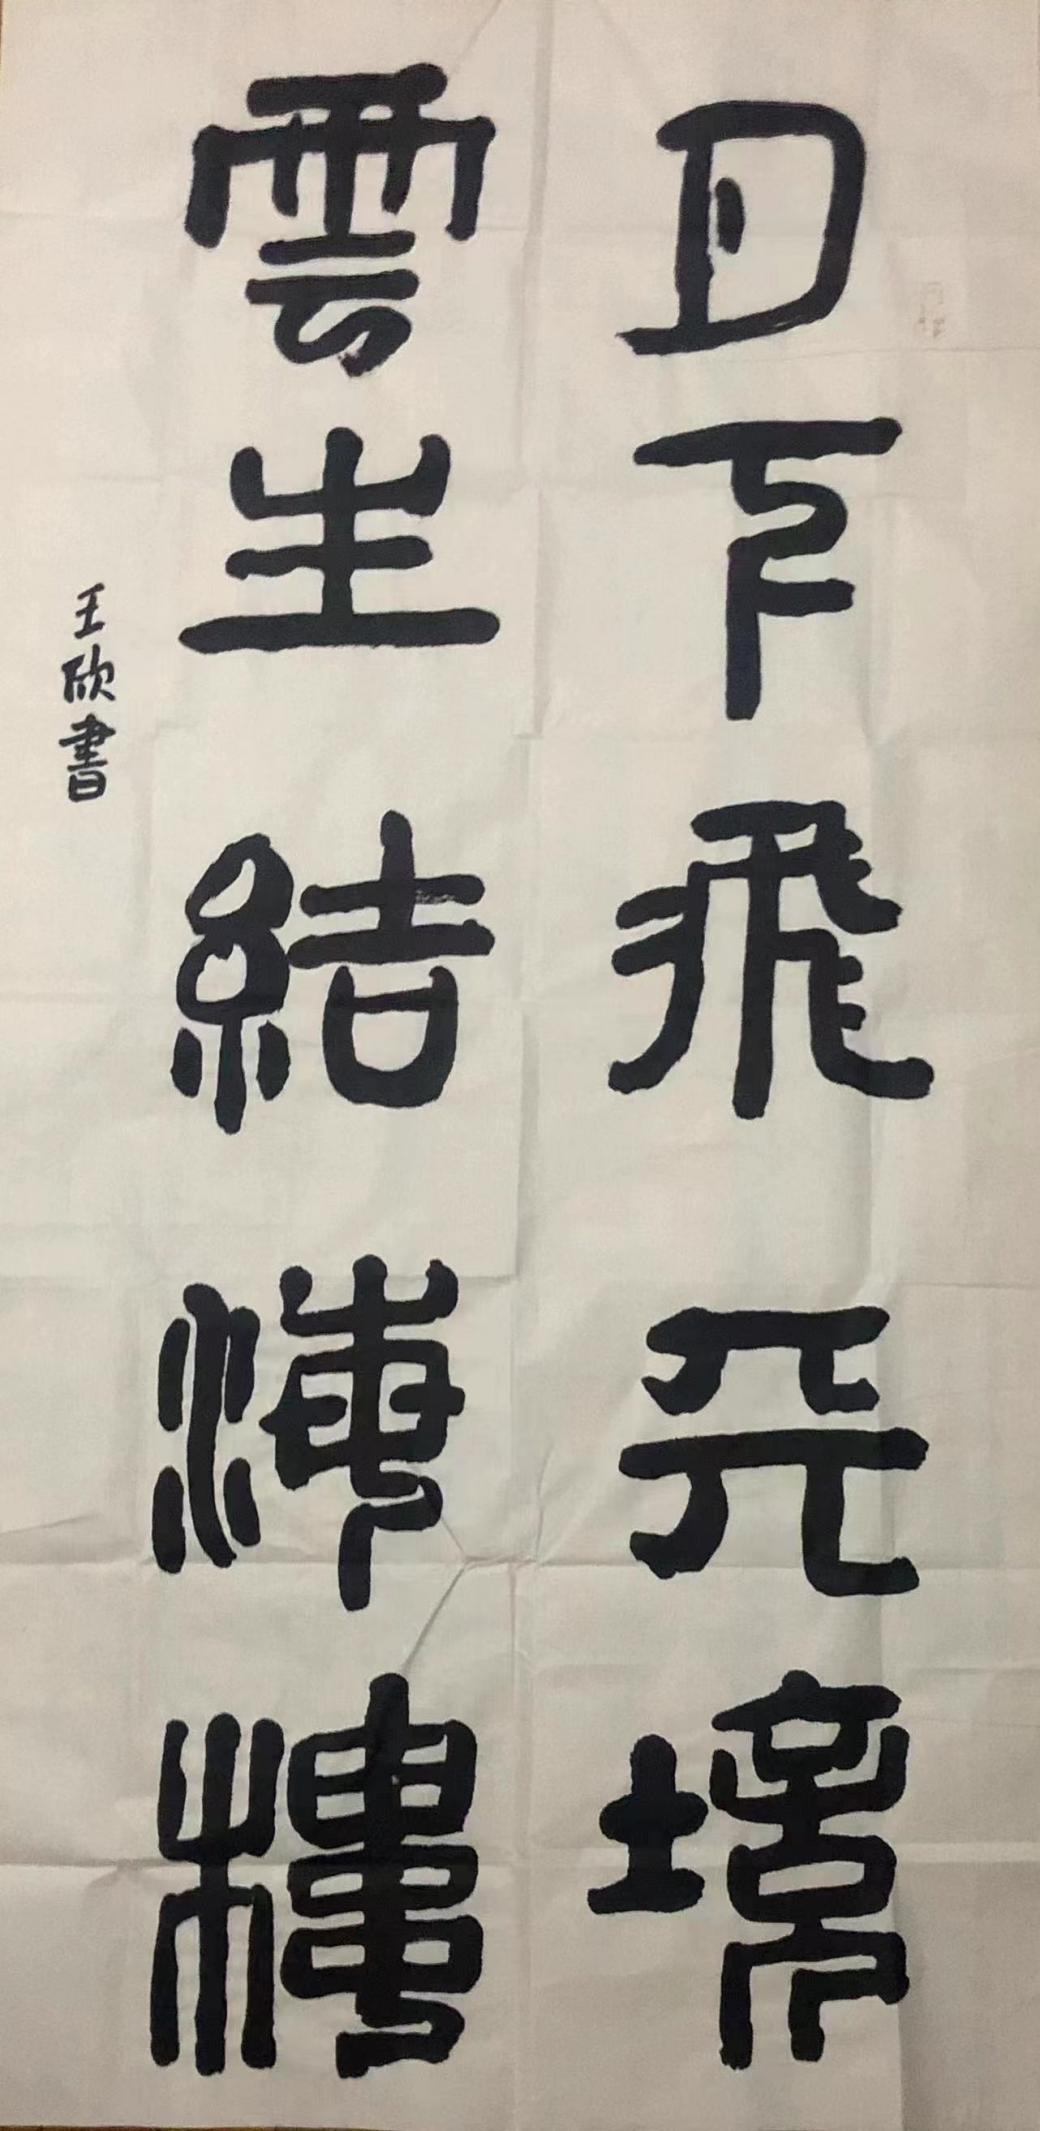 月下飛天境
雲生結海樓
王欣書